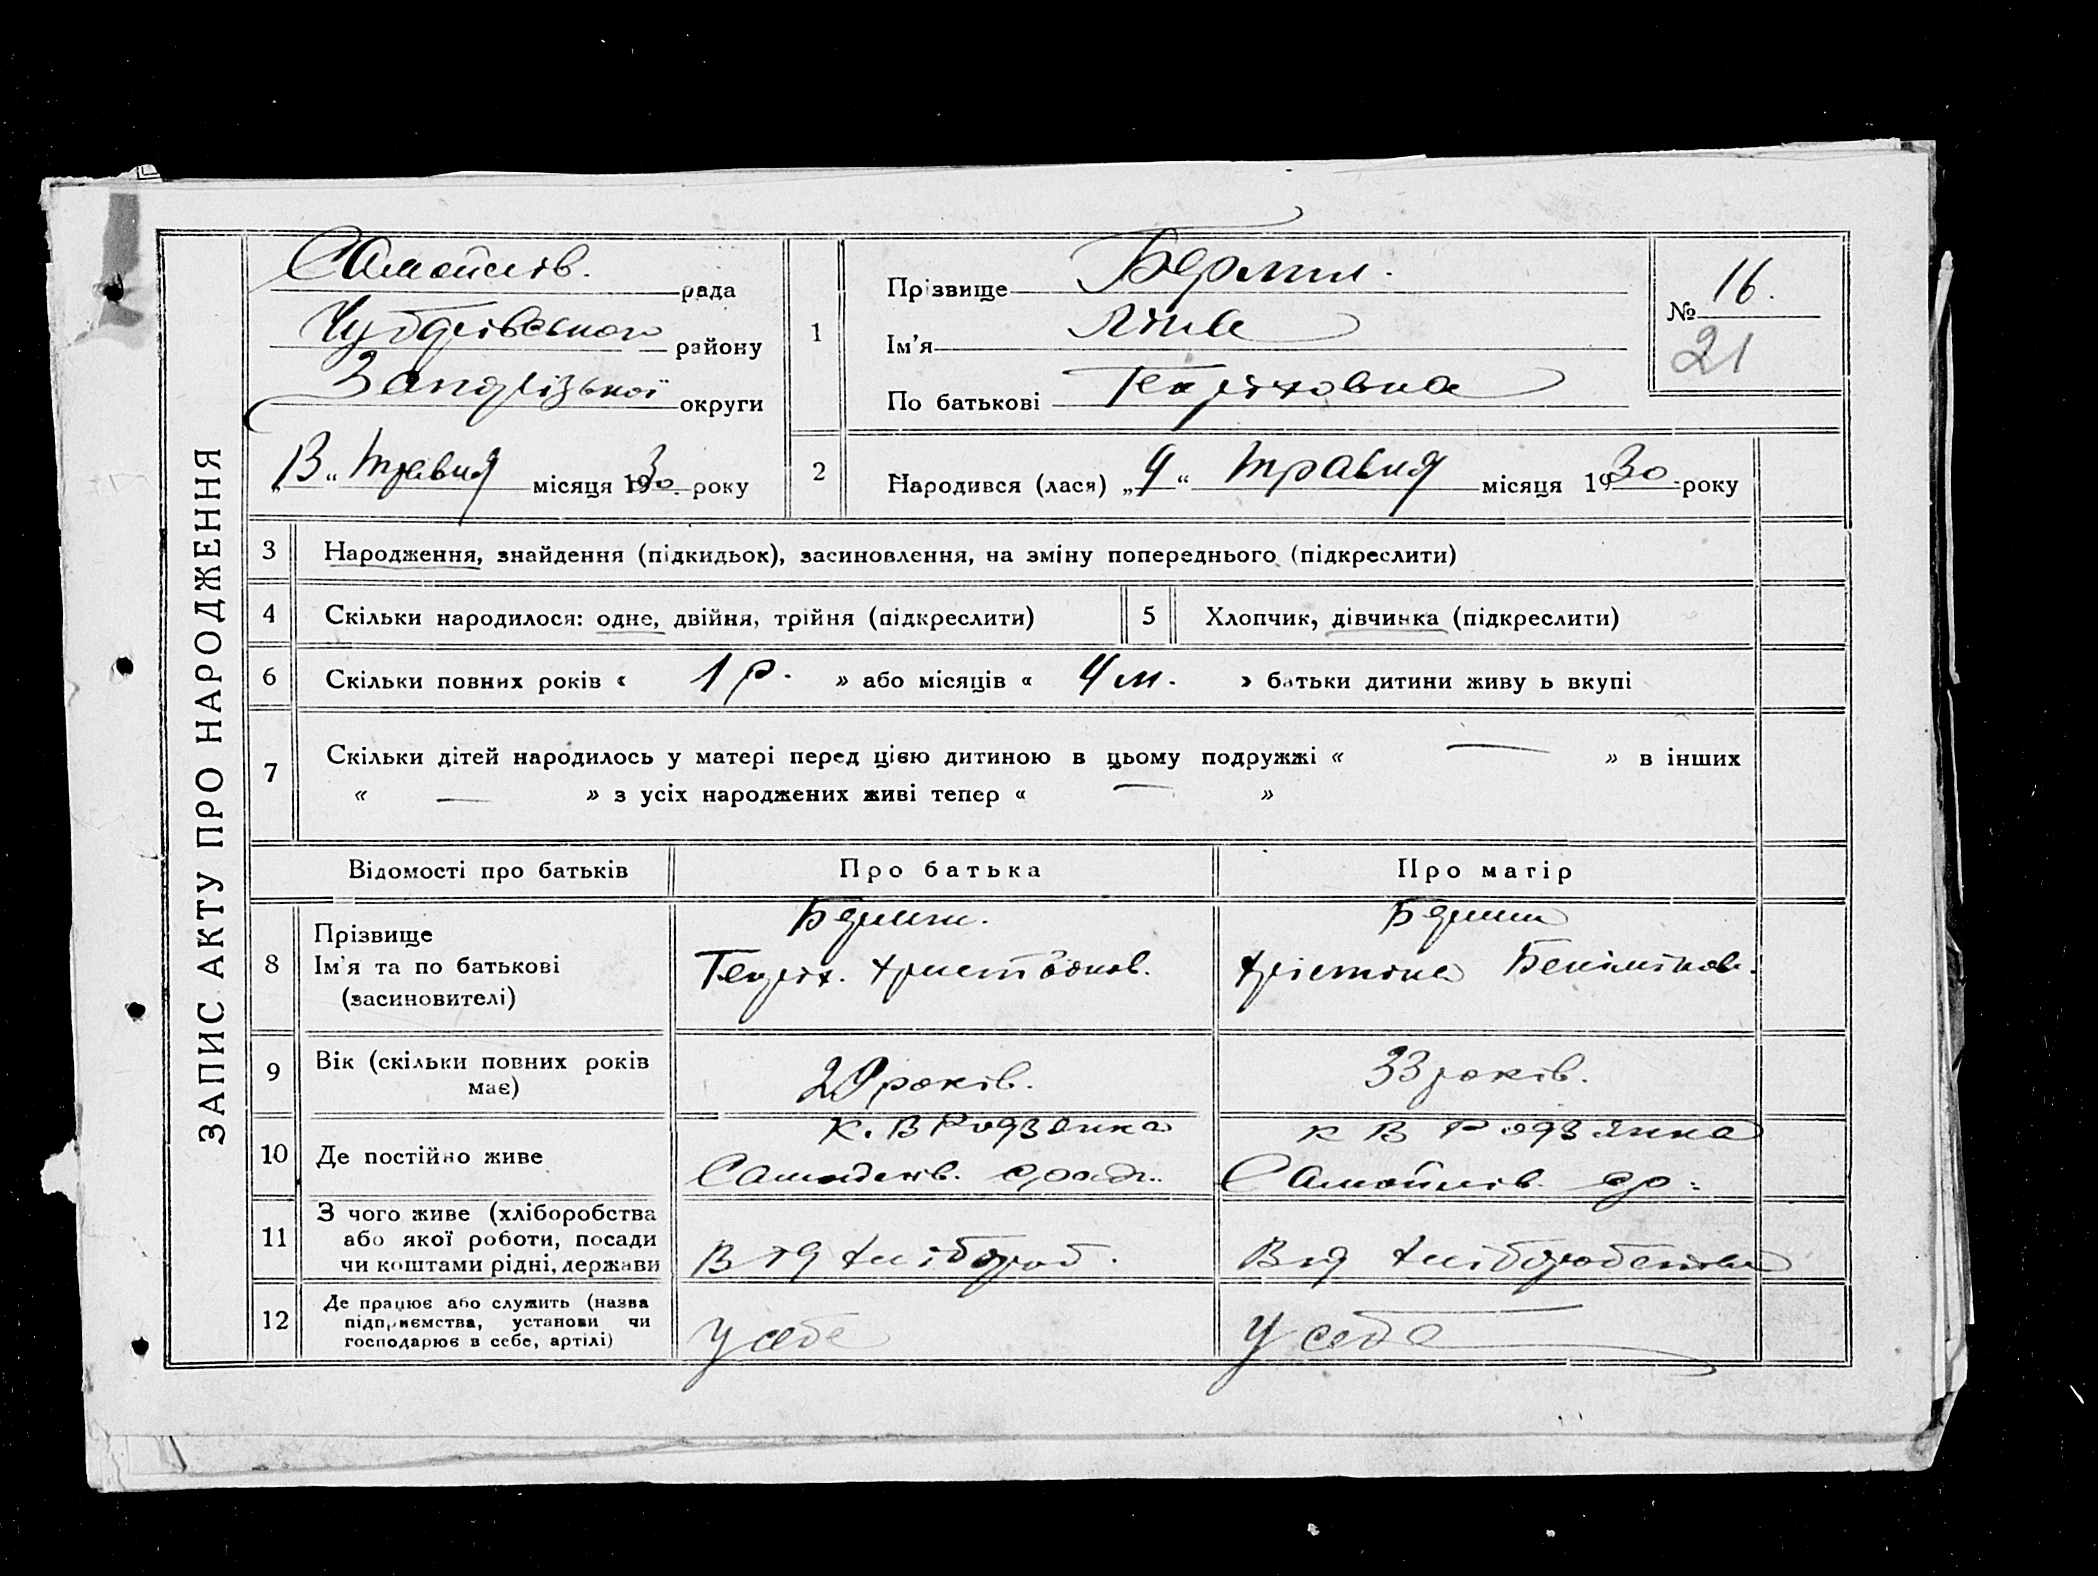 ЗАПИС АКТУ ПРО НАРОДЖЕННЯ
Самойлів. рада
Чубарівського району
Запорізької округи
„13“ травня місяця 1930. року
1
Прізвище
Ім'я
По батькові Генріховна
№ 16.
21
2 Народився (лася) „9“ травня місяця 1930 року
3 Народження, знайдення (підкидьок), засиновлення, на зміну попереднього (підкреслити)
4 Скільки народилося: одне, двійня, трійня (підкреслити) 5 Хлопчик, дівчинка (підкреслити)
6 Скільки повних років « 1 р. » або місяців « 4 м. » батьки дитини живу ь вкупі
7 Скільки дітей народилось у матері перед цією дитиною в цьому подружжі « — » в інших
« — » з усіх народжених живі тепер « — »
Відомості про батьків Про батька Про матір
8 Прізвище
Ім'я та по батькові Генріх. Христіонов. Хрістіна
(засиновителі)
9 Вік (скільки повних років має) 29 років. 33 років.
10 Де постійно живе к. В Родзянка к В Родзянка
Самойлів. с/рад.. Самойлів. ср.
11 З чого живе (хліборобства
або якої роботи, посади
чи коштами рідні, держави Від хлібороб. Від хліборобства
12 Де працює або служить (назва
підприємства, установи чи
господарює в себе, артілі) у себе У себе